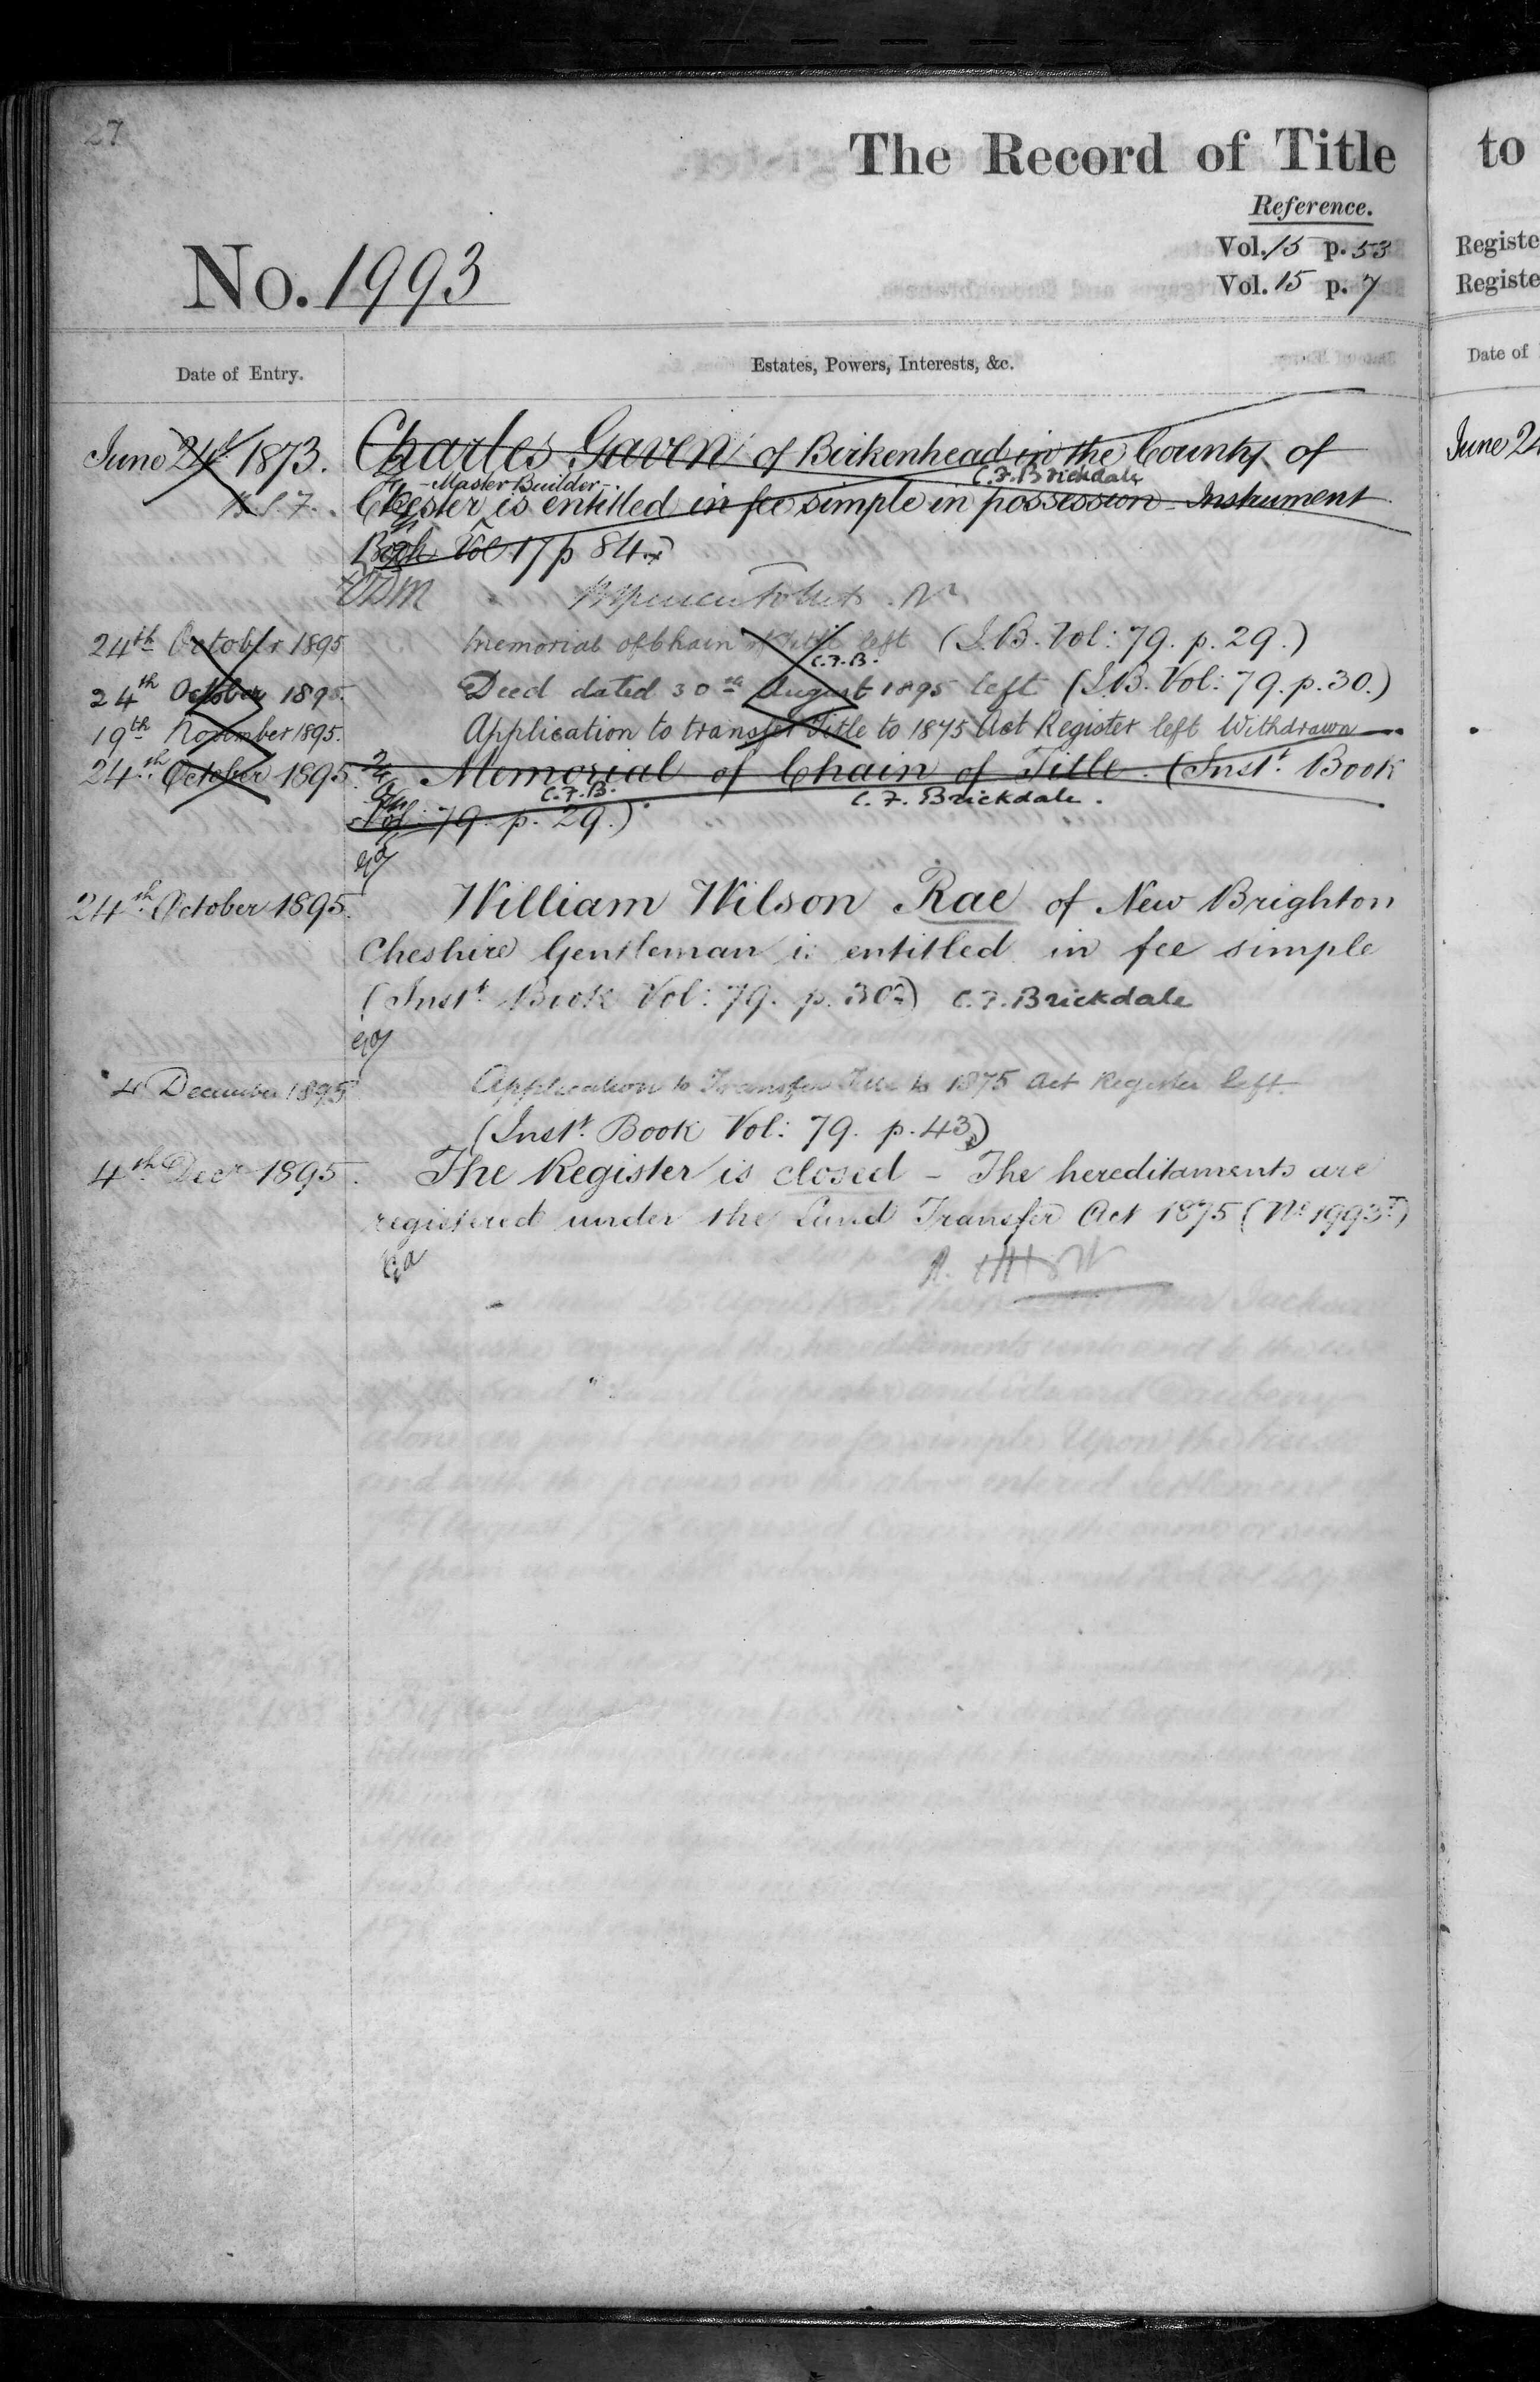 27
The Record of Title
Reference.
Vol. 15 p. 53
Vol. 15 p. 7
No. 1993
Date of Entry.
Estates, Powers, Interests, &c.
June 24th 1873.
Charles Gaven of Birkenhead in the County of
- Master Builder -
C. F. Brickdale
Chester is entitled in fee simple in possession - Instrument
Book Vol 17 p 84.
24th October 1895 Memorial of Chain of Title left (I.B. Vol: 79. p. 29.)
C.F.B.
24th October 1895. Deed dated 30th August 1895 left (I.B. Vol: 79. p. 30.)
19th November 1895. Application to transfer Title to 1875 Act Register left Withdrawn
24th October 1895. Memorial of Chain of Title. (Inst. Book
C.F.B. C. F. Brickdale.
Vol: 79. p. 29.)
24th October 1895. William Wilson Rae of New Brighton
Cheshire Gentleman is entitled in fee simple
(Inst. Book Vol: 79. p. 30.) C. F. Brickdale
4 December 1895 Application to Transfer Title to 1875 Act Register left.
(Inst. Book Vol: 79. p. 43.)
4th Decr 1895. The Register is closed - The hereditaments are
registered under the Land Transfer Act 1875 (No 1993T)
to
Registe
Registe
Date of
June 24